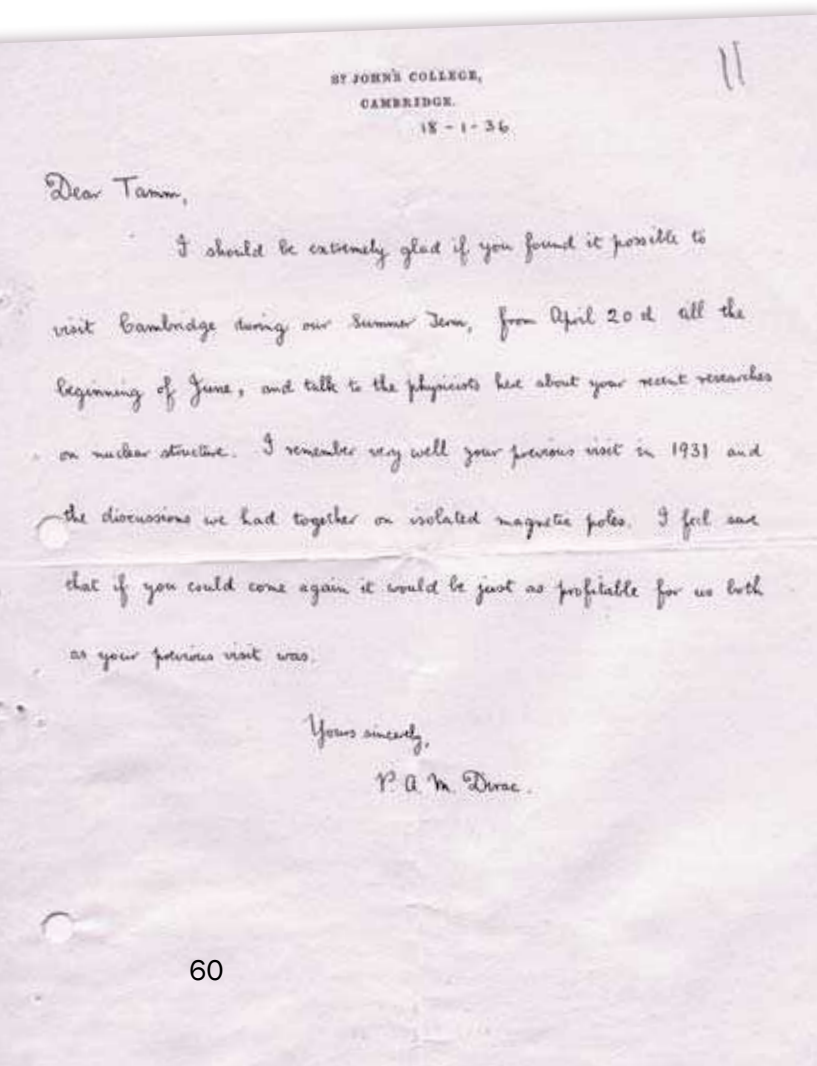 11
ST JOHN'S COLLEGE,
CAMBRIDGE.
18-1-36
Dear Tamm,
I should be extremely glad if you found it possible to
visit Cambridge during our Summer Term, from April 20 till the
beginning of June, and talk to the physicists here about your recent researches
on nuclear structure. I remember very well your previous visit in 1931 and
the discussions we had together on isolated magnetic poles. I feel sure
that if you could come again it would be just as profitable for us both
as your previous visit was.
Yours sincerely,
P. A. M. Dirac.
60